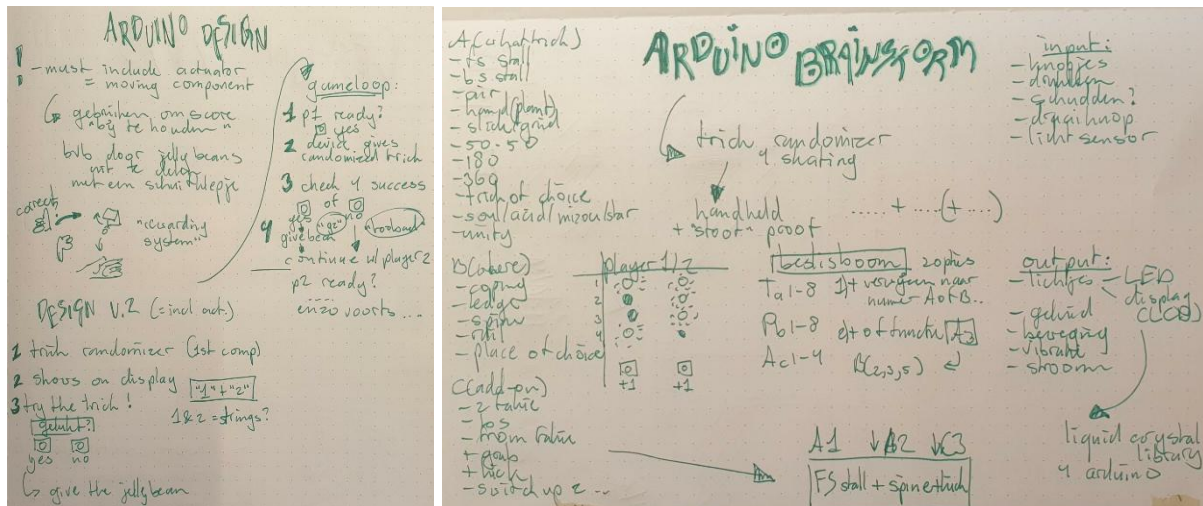 ARDUINO DESIGN
!
- must include actuator
= moving component
↳ gebruiken om score
"bij te houden"
bvb door jellybeans
uit te delen
met een schuifklepje
"rewarding
system"
DESIGN V.2 (= incl act.)
1 trick randomizer (1st comp)
2 shows on display "1" + "2"
1&2 = strings?
3 try the trick!
gelukt?
yes no
↳ give the jellybean
gameloop:
1 p1 ready?
yes
2 device gives
randomized trick
3 check 4 success
of
yes no
4 give bean
continue w/ player 2
p2 ready?
enzovoorts ....
ARDUINO BRAINSTORM
A (what trick)
- fs stall
- bs stall
- air
- hand(plant)
- slide/grind
- 50-50
- 180
- 360
- trick of choice
- unity
B (where)
- coping
- ledge
- spine
- rail
- place of choice
C (add-on)
- 2 fakie
- bs
- from fakie
+ gap
- switch up 2 ..
trick randomizer
4 skating
handheld
+ "stoot" proof
..... + .... (+ ....)
player 1/2
1
2
3
4
+1 +1
beslisboom
20 pins
A3
B(2,3,5)
A1 ↓B2 ↓C3
FS stall + spine + truck
input:
- knopjes
- schudden?
- draaiknop
- lichtsensor
output:
- lichtjes - LED
display
- geluid
- beweging
- vibratie
- stroom
liquid crystal
library
4 arduino